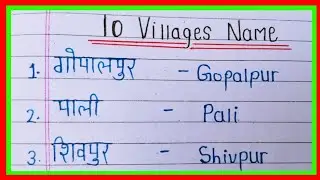 10 Villages Name
1. गोपालपुर - Gopalpur
2. पाली - Pali
3. शिवपुर - Shivpur